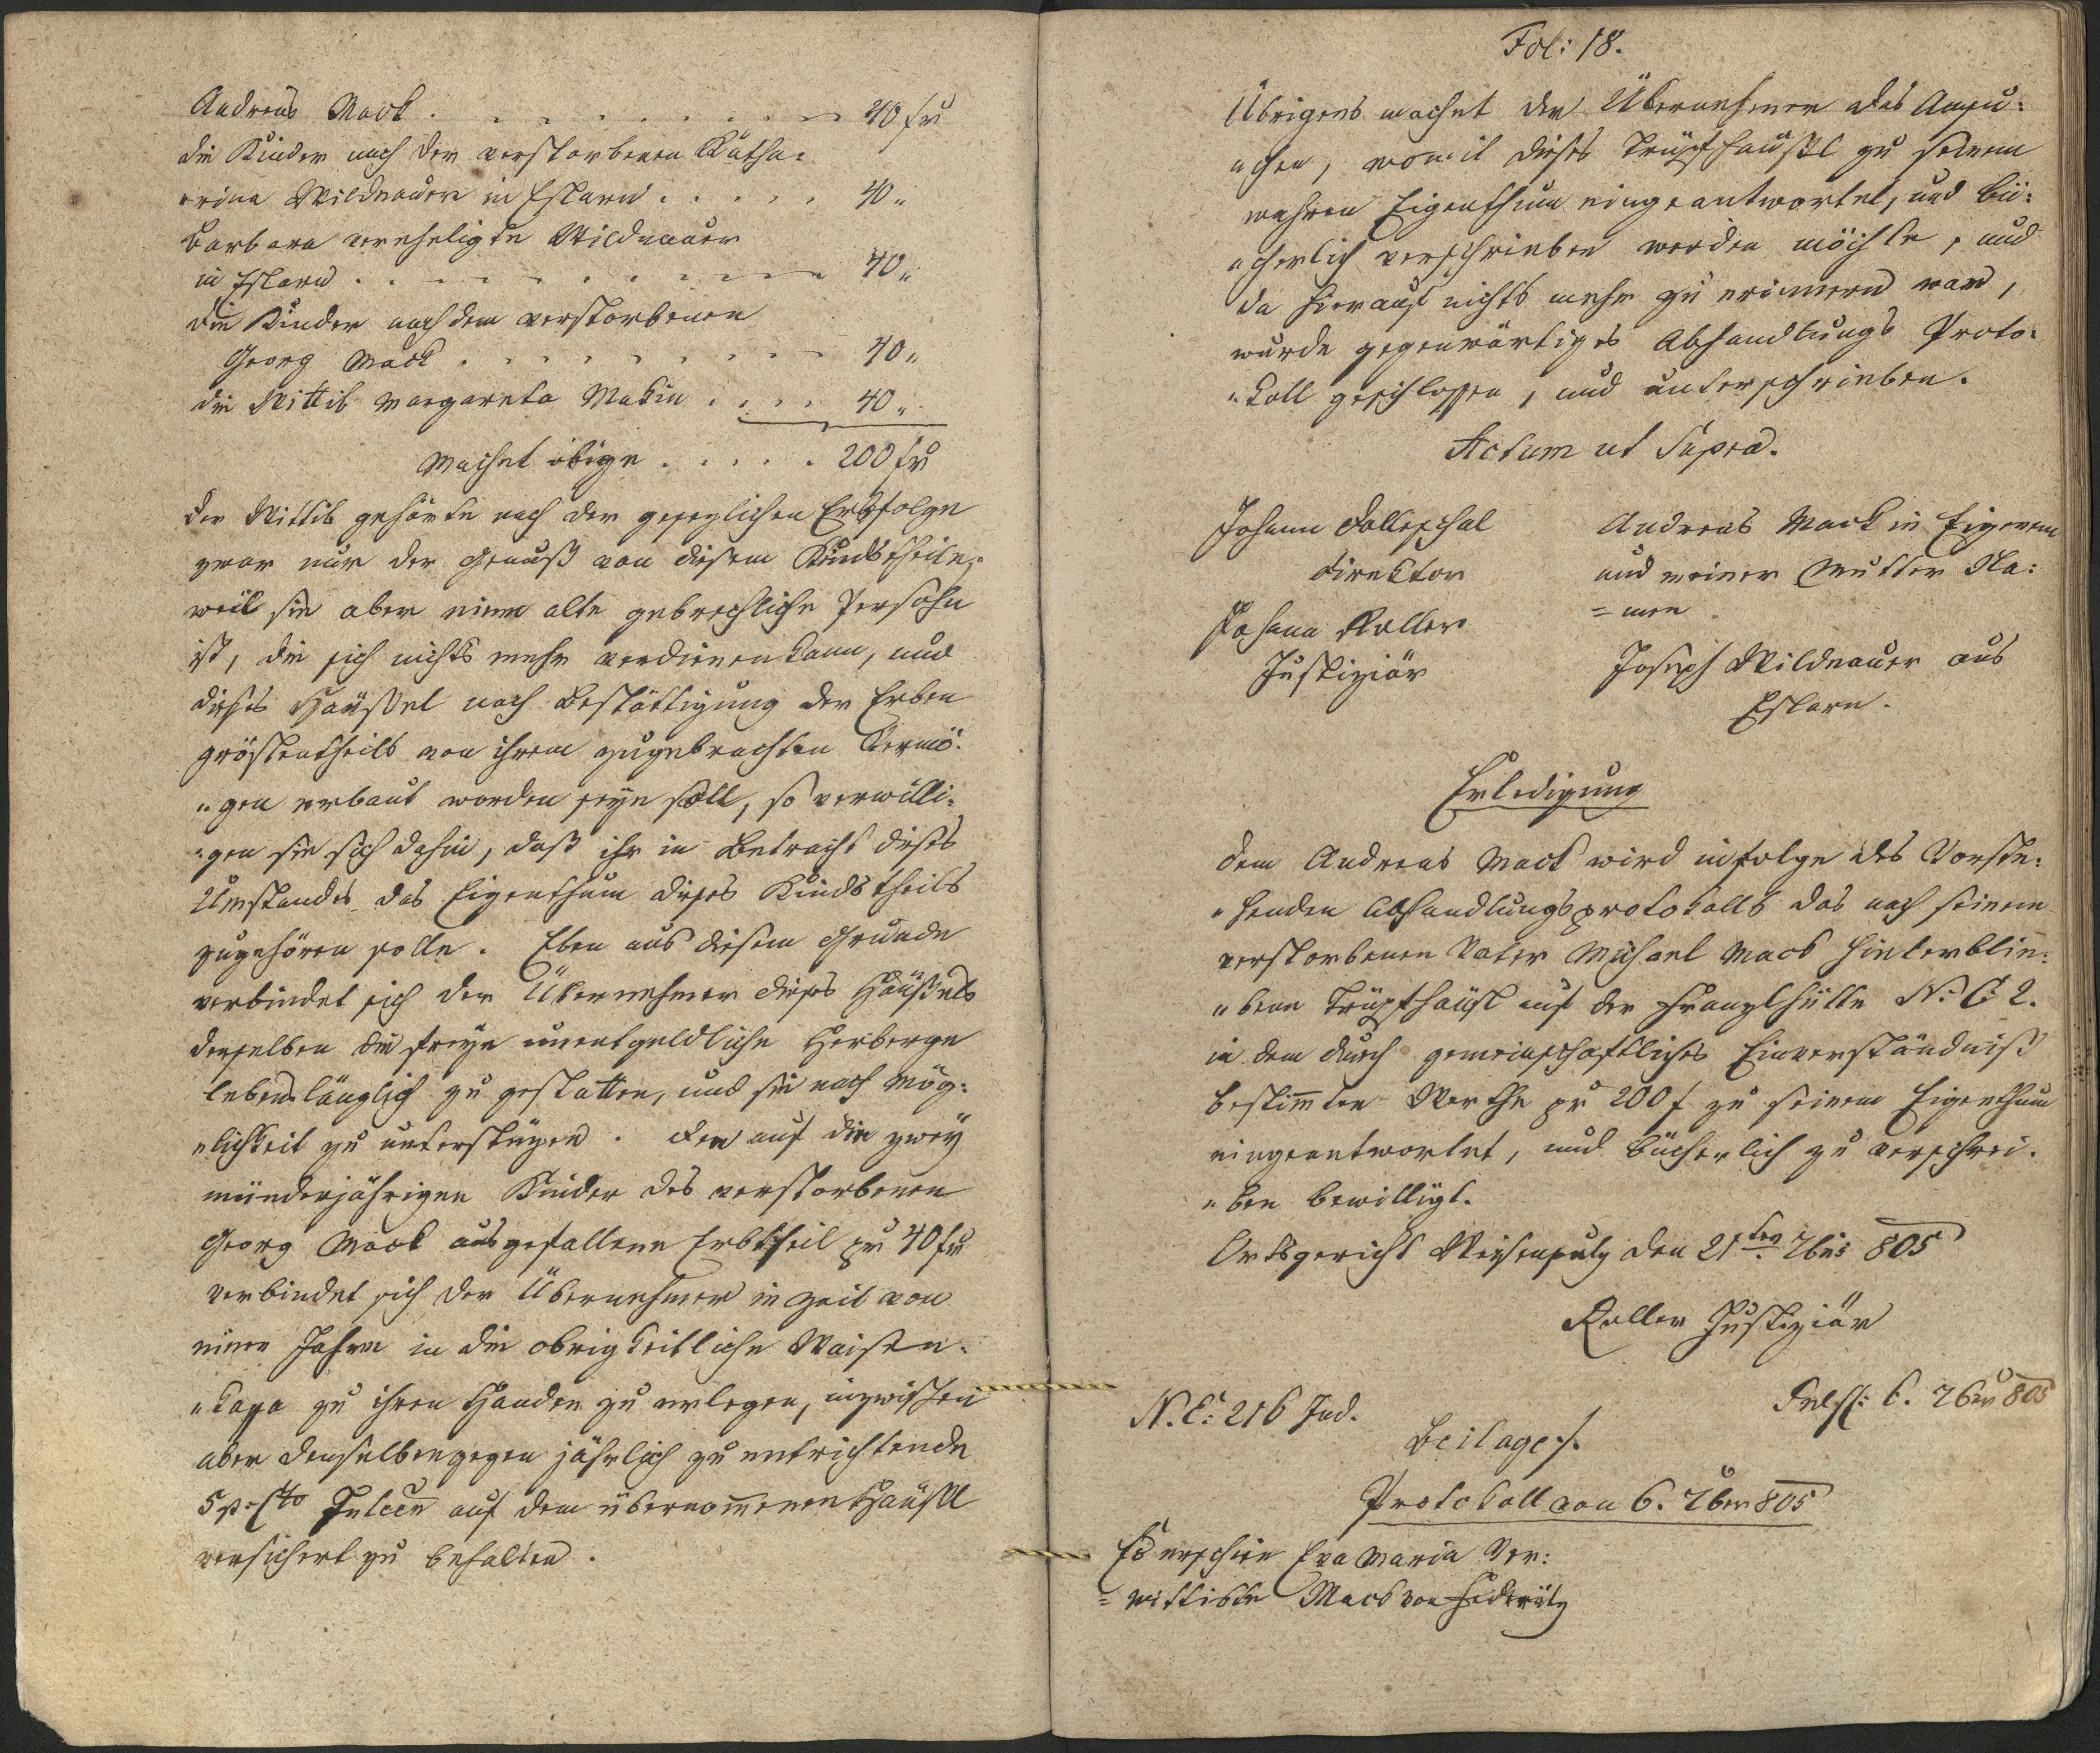 Andreas Mack . . . . . . . . . . 40 fr
die Kinder nach der verstorbenen Katha:
„rina Wildnauer in Eslarn . . . . . 40 „
Barbara verehligte Wildnauer
in Eslarn . . . . . . . . . . 40 „
die Kinder nach dem verstorbenen
Georg Mack . . . . . . . . . 40 „
die Wittib Margareta Makin . . . . 40 „
Machet obige . . . . . 200 fr
Der Wittib gehörte nach der gesezlichen Erbsfolge
zwar nur der Genuß von diesem Kindstheile,
weil sie aber eine alte gebrechliche Persohn
ist, die sich nichts mehr verdienen kann, und
dieses Häußel nach Bestättigung der Erben
gröstentheils von ihrem zugebrachten Vermö:
„gen erbaut worden seyn soll, so verwilli:
„gen sie sich dahin, daß ihr in Betracht dieses
Umstandes das Eigenthum dieses Kindstheils
zugehören solle. Eben aus diesem Grunde
verbindet sich der Übernehmer dieses Häußels
derselben die freye unentgeldliche Herberge
lebenslänglich zu gestatten, und sie nach Mög:
„lichkeit zu unterstüzen. Den auf die zwey
münderjährigen Kinder des verstorbenen
Georg Mack ausgefallene Erbtheil pr 40 fr
verbindet sich der Übernehmer in Zeit von
einem Jahre in die obrigkeitliche Waisen:
„kassa zu ihren Handen zu erlegen, inzwischen
aber denselben gegen jährlich zu entrichtende
5 p Cto auf dem übernom̄enen Häußl
versichert zu behalten.
Fol: 18.
Übrigens machet der Übernehmer das Ansu:
„chen, womit dieses Trüpfhäußl zu seinem
wahren Eigenthum eingeantwortet, und bü:
„cherlich verschrieben werden möchte, und
da hierauf nichts mehr zu erinnern war,
wurde gegenwärtiges Abhandlungs Proto:
„koll geschlossen, und unterschrieben.
Actum ut Supra.
Johann Dolleschal
Direktor
Johann Roller
Justiziär
Andreas Mack in Eigenem
und meiner Mutter Na:
=men
Joseph Wildnauer aus
Eslarn.
Erledigung
Dem Andreas Mack wird infolge des Vorste:
„henden Abhandlungsprotokolls das nach seinem
verstorbenen Vater Michael Mack hinterblie:
„bene Trüpfhäusl auf der Franzlhütte N: C: 2.
in dem durch gemeinschaftliches Einverständniß
bestim̄ten Werthe pr 200 f zu seinem Eigenthum
eingeantwortet, und bücherlich zu verschrei:
„ben bewilligt.
Ortsgericht Weißensulz den 21ten 7bris 805
Roller Justiziär
N. E: 216 Jud.
6. 7ber 805
Beilage ./.
Protokoll von 6. 7ber 805
Es erschien Eva Maria Ver:
=wittibte Mack von